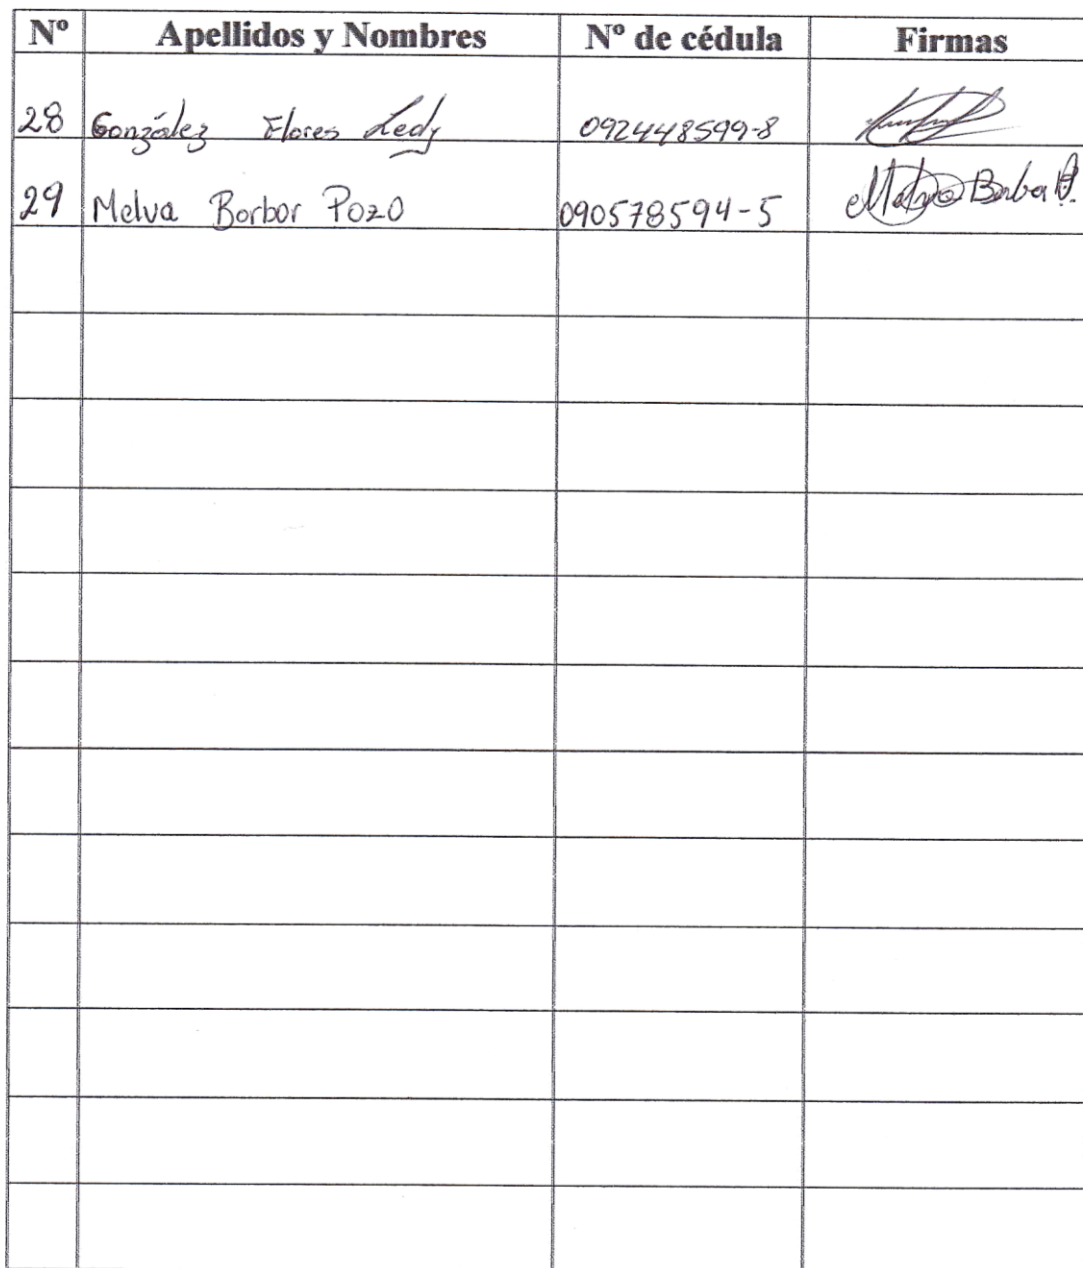 Nº Apellidos y Nombres Nº de cédula Firmas
28 González Flores Ledy 092448599-8
29 Melva Borbor Pozo 090578594-5 Melva Borbor P.